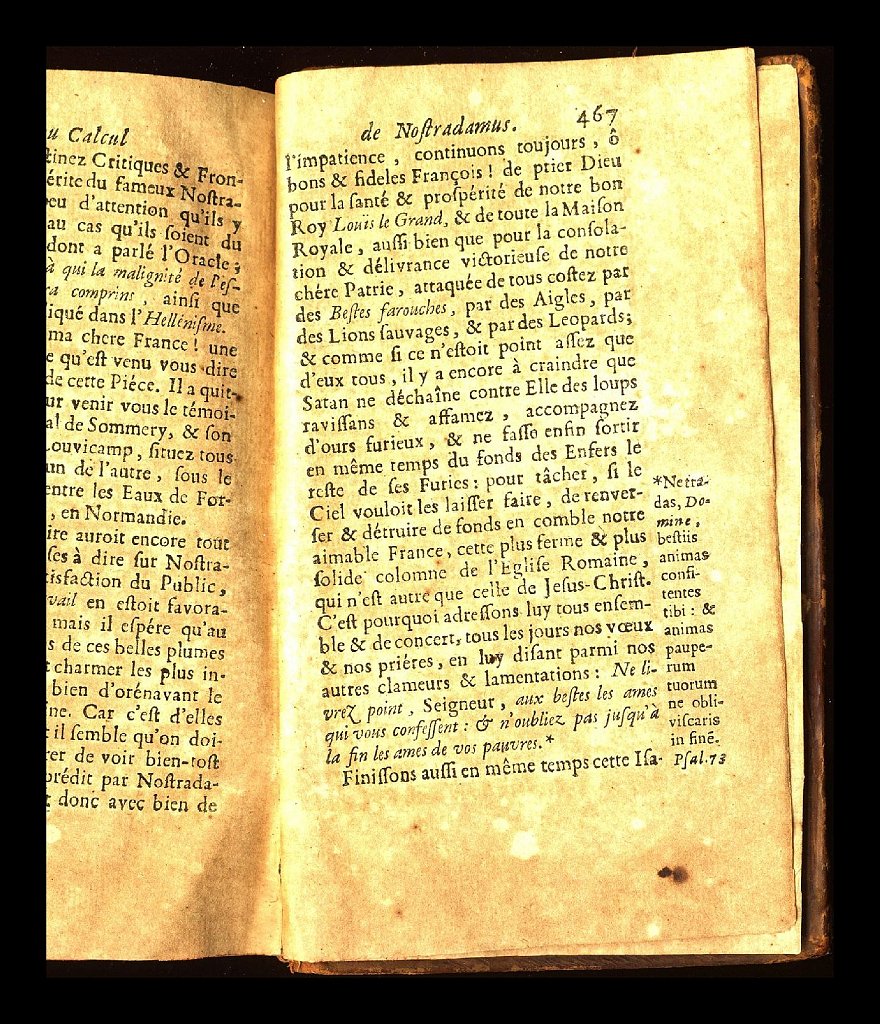 u Calcul
tinez Critiques & Fron-
érite du fameux Noſtra-
eu d'attention qu'ils y
au cas qu'ils ſoient du
dont a parlé l'Oracle;
à qui la malignité de l'eſ-
ra comprins, ainſi que
iqué dans l'Hellénisme.
ma chere France! une
e qu'eſt venu vous dire
de cette Piéce. Il a quit-
ur venir vous le témoi-
al de Sommery, & ſon
Louvicamp, ſituez tous
un de l'autre, ſous le
entre les Eaux de For-
, en Normandie.
ire auroit encore tout
ſes à dire ſur Noſtra-
tisfaction du Public,
vail en eſtoit favora-
mais il eſpére qu'au
s de ces belles plumes
t charmer les plus in-
bien d'orénavant le
ine. Car c'eſt d'elles
t il ſemble qu'on doi-
rer de voir bien-toſt
prédit par Noſtrada-
t donc avec bien de
de Noſtradamus. 467
l'impatience, continuons toujours, ô
bons & fideles François! de prier Dieu
pour la ſanté & proſpérité de notre bon
Roy Louis le Grand, & de toute la Maiſon
Royale, auſſi bien que pour la conſola-
tion & délivrance victorieuſe de notre
chére Patrie, attaquée de tous coſtez par
des Beſtes farouches, par des Aigles, par
des Lions ſauvages, & par des Leopards;
& comme ſi ce n'eſtoit point aſſez que
d'eux tous, il y a encore à craindre que
Satan ne déchaîne contre Elle des loups
raviſſans & affamez, accompagnez
d'ours furieux, & ne faſſe enfin ſortir
en même temps du fonds des Enfers le
reſte de ſes Furies: pour tâcher, ſi le
Ciel vouloit les laiſſer faire, de renver-
ſer & détruire de fonds en comble notre
aimable France, cette plus ferme & plus
ſolide colomne de l'Egliſe Romaine,
qui n'eſt autre que celle de Jesus-Chriſt.
C'eſt pourquoi adreſſons luy tous enſem-
ble & de concert, tous les jours nos vœux
& nos priéres, en luy diſant parmi nos
autres clameurs & lamentations: Ne li-
vrez point, Seigneur, aux beſtes les ames
qui vous confeſſent: & n'oubliez pas juſqu'à
la fin les ames de vos pauvres.*
Finiſſons auſſi en même temps cette Iſa-
*Ne tra-
das, Do-
mine,
beſtiis
animas
confi-
tentes
tibi: &
animas
paupe-
rum
tuorum
ne obli-
viſcaris
in finē.
Pſal. 73